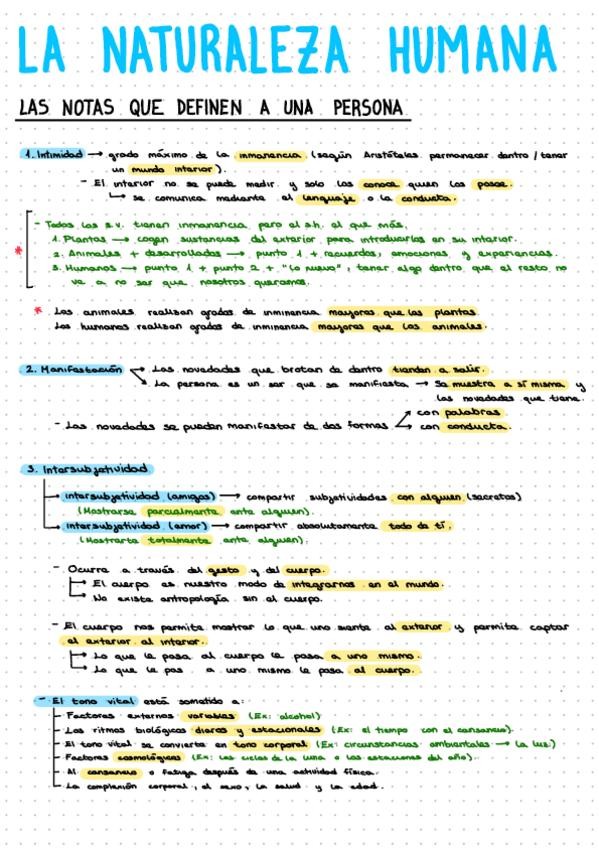 LA NATURALEZA HUMANA
LAS NOTAS QUE DEFINEN A UNA PERSONA
1. Intimidad → grado máximo de la inmanencia (según Aristóteles permanecer dentro / tener
un mundo interior).
- El interior no se puede medir y solo las conoce quien las posee.
↳ se comunica mediante el lenguaje o la conducta.
- Todos los s.v. tienen inmanencia pero el s.h. el que más.
1. Plantas → cogen sustancias del exterior para introducirlas en su interior.
* 2. Animales + desarrollados → punto 1 + recuerdos, emociones y experiencias.
3. Humanos → punto 1 + punto 2 + "lo nuevo", tener algo dentro que el resto no
ve a no ser que nosotros queramos.
* Los animales realizan grados de inminencia mayores que las plantas
Los humanos realizan grados de inminencia mayores que los animales.
2. Manifestación → Las novedades que brotan de dentro tienden a salir.
→ La persona es un ser que se manifiesta → Se muestra a sí misma y
las novedades que tiene.
→ con palabras
- Las novedades se pueden manifestar de dos formas → con conducta.
3. Intersubjetividad
→ intersubjetividad (amigos) → compartir subjetividades con alguien (secretos)
(Mostrarse parcialmente ante alguien).
→ intersubjetividad (amor) → compartir absolutamente todo de ti.
(Mostrarte totalmente ante alguien).
- Ocurre a través del gesto y del cuerpo.
→ El cuerpo es nuestro modo de integrarnos en el mundo.
→ No existe antropología sin el cuerpo.
- El cuerpo nos permite mostrar lo que uno siente al exterior y permite captar
el exterior al interior.
→ Lo que le pasa al cuerpo le pasa a uno mismo.
→ Lo que le pas a uno mismo le pasa al cuerpo.
- El tono vital está sometido a:
- Factores externos variables (Ex: alcohol)
- Los ritmos biológicos diarios y estacionales (Ex: el tiempo con el cansancio).
- El tono vital se convierte en tono corporal (Ex: circunstancias ambientales → la luz)
- Factores cosmológicos (Ex: los ciclos de la luna o las estaciones del año).
- Al cansancio o fatiga después de una actividad física.
- La complexión corporal, el sexo, la salud y la edad.